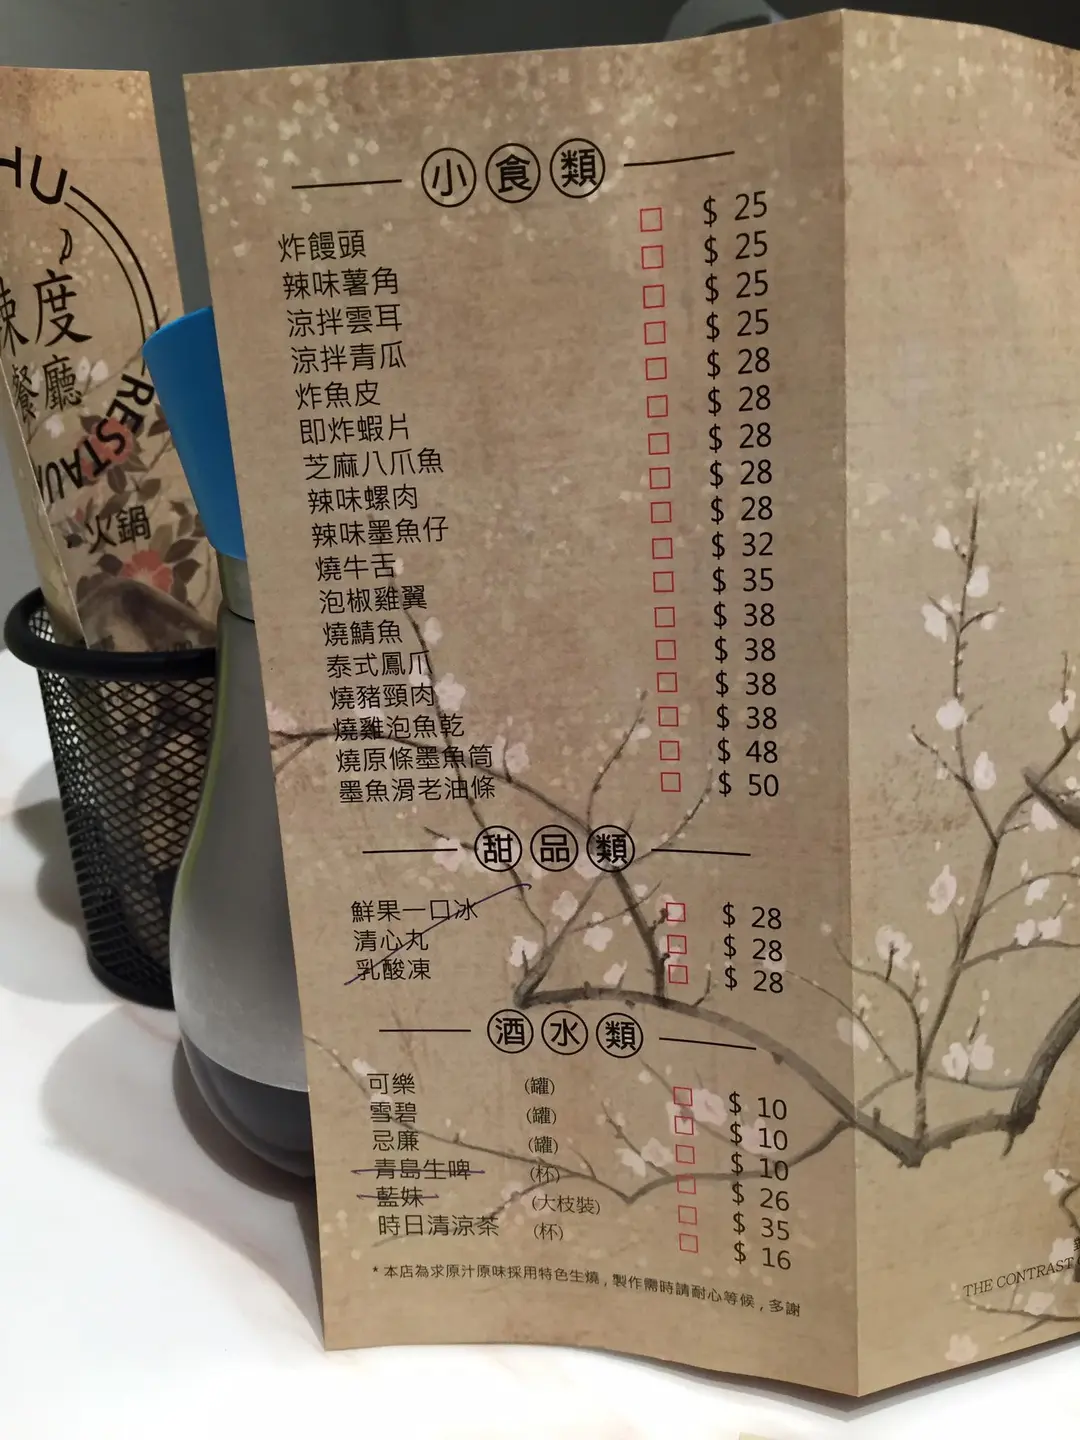 HU
辣度
餐廳
RESTAU
火鍋
小食類
炸饅頭 □ $ 25
辣味薯角 □ $ 25
涼拌雲耳 □ $ 25
涼拌青瓜 □ $ 25
炸魚皮 □ $ 28
即炸蝦片 □ $ 28
芝麻八爪魚 □ $ 28
辣味螺肉 □ $ 28
辣味墨魚仔 □ $ 28
燒牛舌 □ $ 32
泡椒雞翼 □ $ 35
燒鯖魚 □ $ 38
泰式鳳爪 □ $ 38
燒豬頸肉 □ $ 38
燒雞泡魚乾 □ $ 38
燒原條墨魚筒 □ $ 48
墨魚滑老油條 □ $ 50
甜品類
鮮果一口冰 □ $ 28
清心丸 □ $ 28
乳酸凍 □ $ 28
酒水類
可樂 (罐) □ $ 10
雪碧 (罐) □ $ 10
忌廉 (罐) □ $ 10
青島生啤 (杯) □ $ 26
藍妹 (大枝裝) □ $ 35
時日清涼茶 (杯) □ $ 16
*本店為求原汁原味採用特色生燒,製作需時請耐心等候,多謝
THE CONTRAST